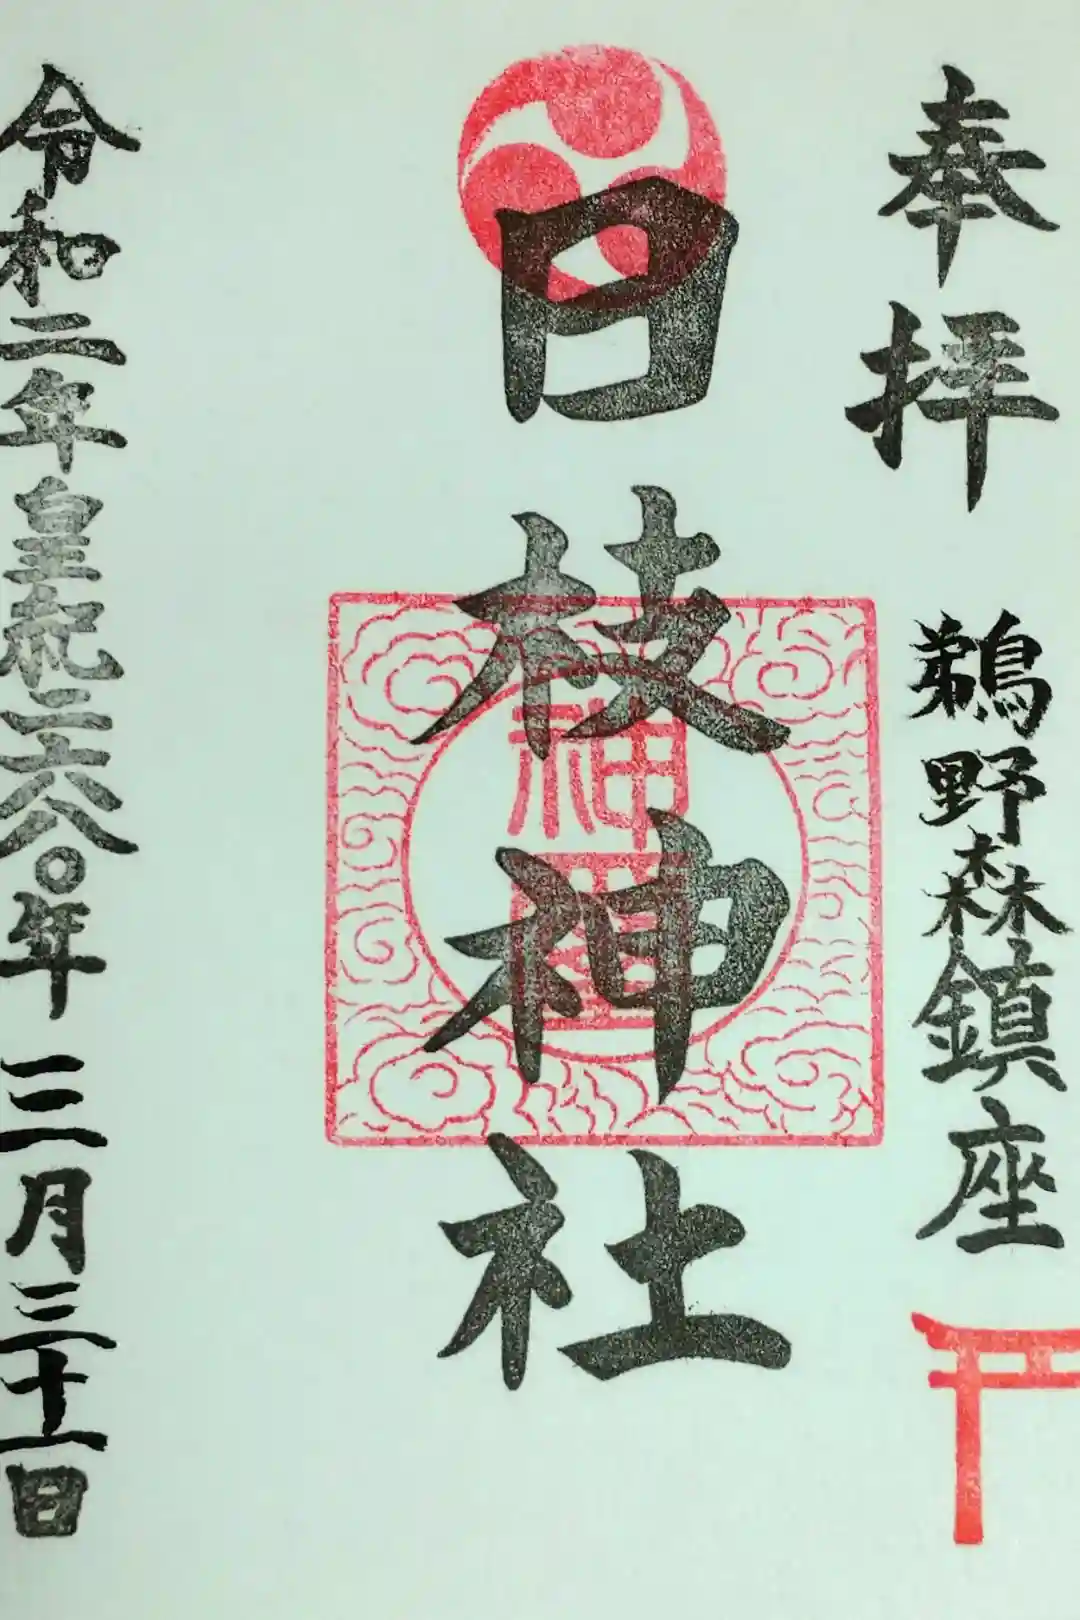 奉拝 鵜野森鎮座
日枝神社
神璽
令和二年皇紀二六八〇年 三月三十一日